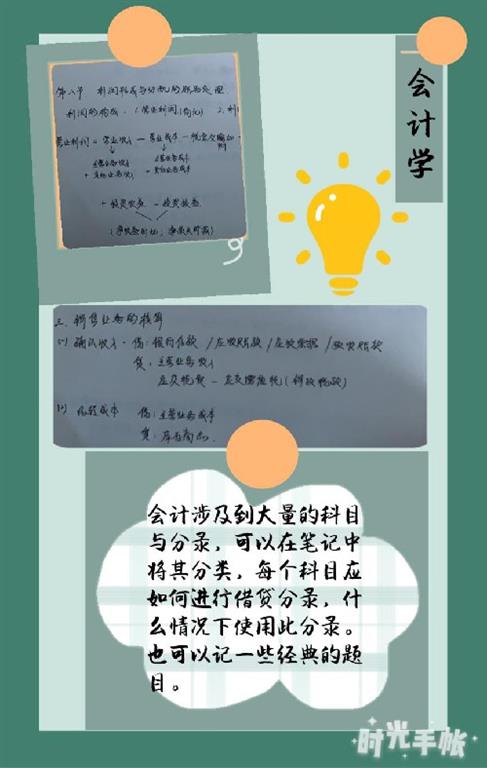 会计学
第八节 利润形成与分配的账务处理
利润的构成：1.营业利润
2.利
营业利润 = 营业收入 － 营业成本 － 税金及附加
主营业务收入
+ 其他业务收入
主营业务成本
+ 其他业务成本
+ 投资收益 － 投资损益
三、销售业务的核算
(1) 确认收入 · 借：银行存款/应收账款/应收票据/预收账款
贷：主营业务收入
应交税费－应交增值税(销项税额)
(2) 结转成本 借：主营业务成本
贷：库存商品
会计涉及到大量的科目
与分录，可以在笔记中
将其分类，每个科目应
如何进行借贷分录，什
么情况下使用此分录。
也可以记一些经典的题
目。
时光手帐